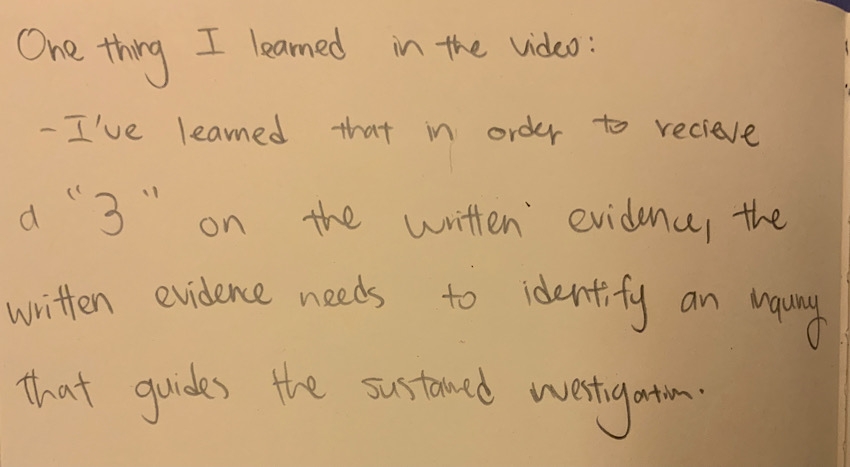 One thing I learned in the video:
- I've learned that in order to recieve
a "3" on the written evidence, the
written evidence needs to identify an inquiry
that guides the sustained investigation.